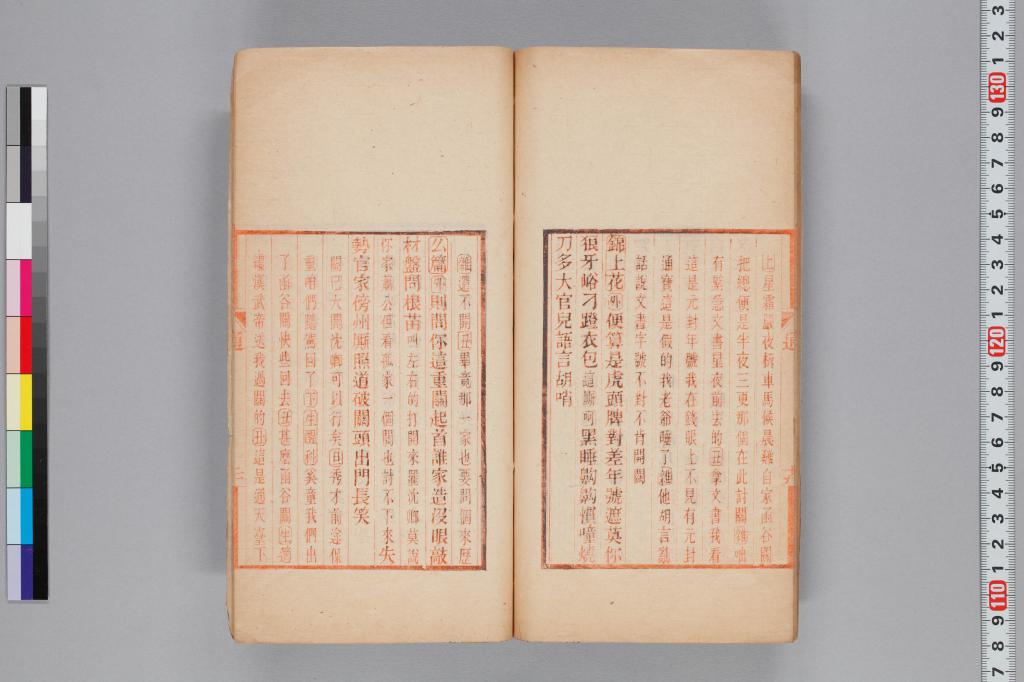 上星霜最夜檳車馬候晨雞自家函谷關
把總便是半夜三更那個在此討關雜咄
有緊急文書星夜前去的丑拿文書我看
這是元封年號我在錢眼上不見有元封
通寶這是假的我老爺睡了雜他胡言亂
話說文書字號不對不肯開關
錦上花雜便算是虎頭牌對差年號遮莫你
狼牙峪刁蹬衣包這廝呵黑睡齁齁慣噇燒
刀多大官兒語言胡哨
雜還不開丑畢竟那一家也要問個來歷
么篇雜則問你這重關起首誰家造沒眼敲
材盤問根苗雜左右的打開來羅沈卿莫說
你家蕭公但看孤家一個關也討不下來失
勢官家傍州廝照道破關頭出門長笑
關已大開沈卿可以行矣旦秀才前途保
重咱們隨駕回了下生醒科奚童我們出
了函谷關快些回去丑甚麼函谷關生適
纔漢武帝送我過關的丑這是通天臺下